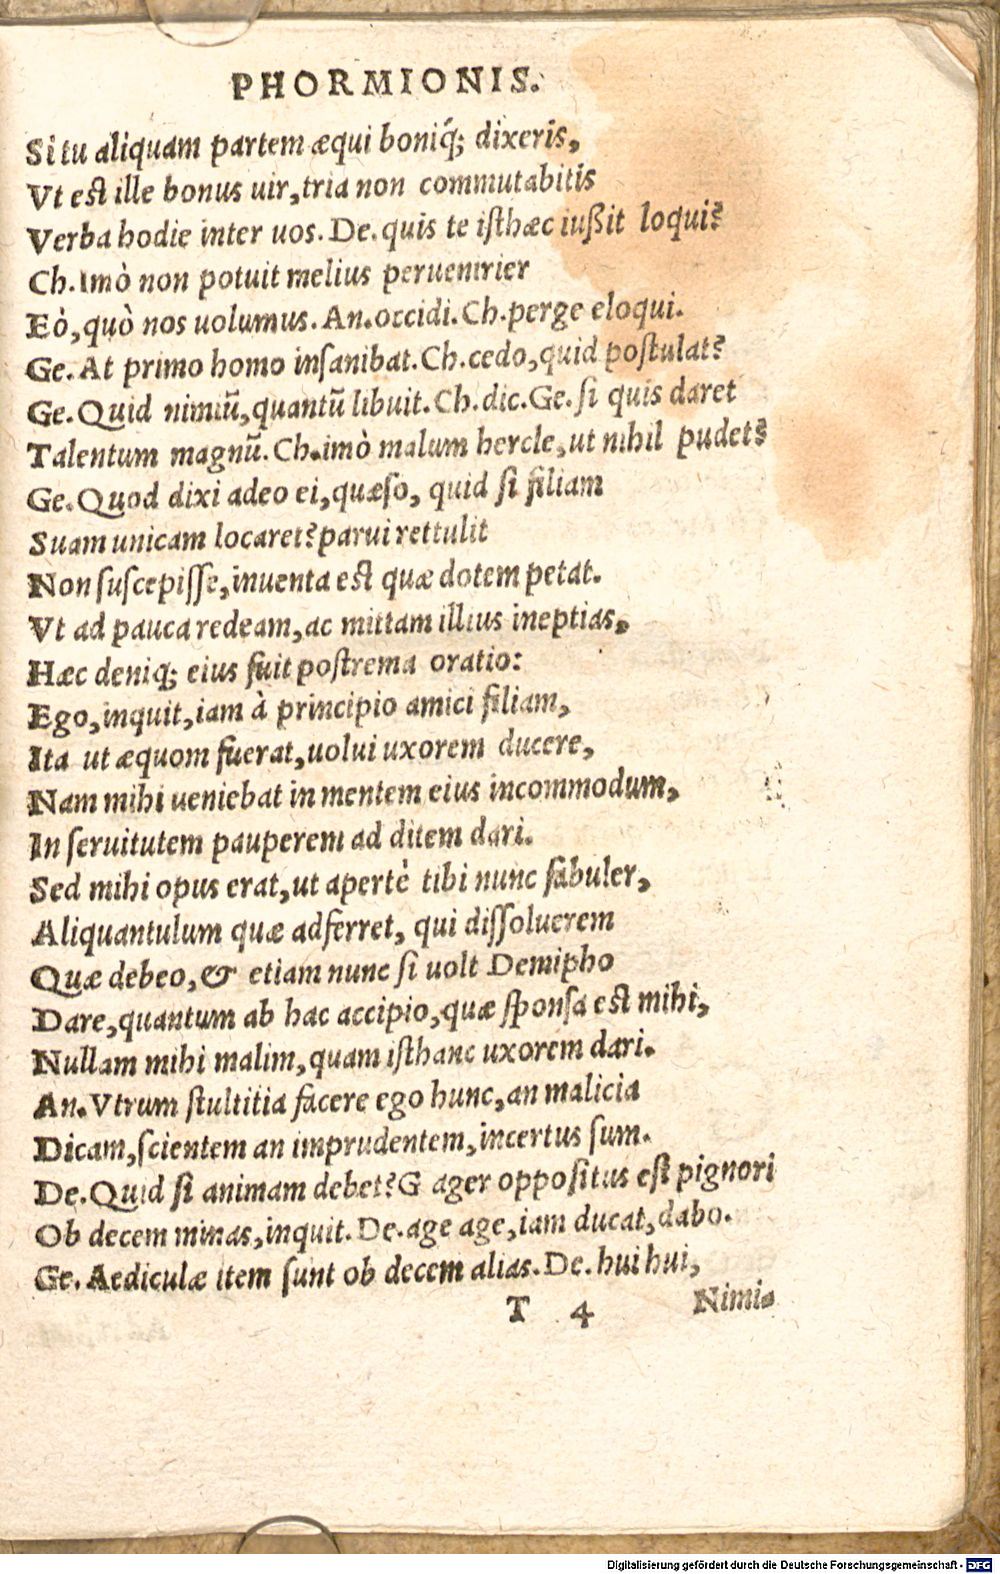 PHORMIONIS.
Si tu aliquam partem æqui boniq́; dixeris,
Vt est ille bonus uir, tria non commutabitis
Verba hodie inter uos. De. quis te isthæc iußit loqui?
Ch. Imò non potuit melius peruenirier
Eò, quò nos uolumus. An. occidi. Ch. perge eloqui.
Ge. At primo homo insanibat. Ch. cedo, quid postulat?
Ge. Quid nimiũ, quantũ libuit. Ch. dic. Ge. si quis daret
Talentum magnũ. Ch. imò malum hercle, ut nihil pudet?
Ge. Quod dixi adeo ei, quæso, quid si filiam
Suam unicam locaret? parui rettulit
Non suscepisse, inuenta est quæ dotem petat.
Vt ad pauca redeam, ac mittam illius ineptias,
Hæc deniq; eius fuit postrema oratio:
Ego, inquit, iam à principio amici filiam,
Ita ut æquom fuerat, uolui uxorem ducere,
Nam mihi ueniebat in mentem eius incommodum,
In seruitutem pauperem ad ditem dari.
Sed mihi opus erat, ut apertè tibi nunc fabuler,
Aliquantulum quæ adferret, qui dissoluerem
Quæ debeo, & etiam nunc si uolt Demipho
Dare, quantum ab hac accipio, quæ sponsa est mihi,
Nullam mihi malim, quam isthanc uxorem dari.
An. Vtrum stultitia facere ego hunc, an malicia
Dicam, scientem an imprudentem, incertus sum.
De. Quid si animam debet? G ager oppositus est pignori
Ob decem minas, inquit. De. age age, iam ducat, dabo.
Ge. Aediculæ item sunt ob decem alias. De. hui hui,
T 4 Nimi-
Digitalisierung gefördert durch die Deutsche Forschungsgemeinschaft - DFG